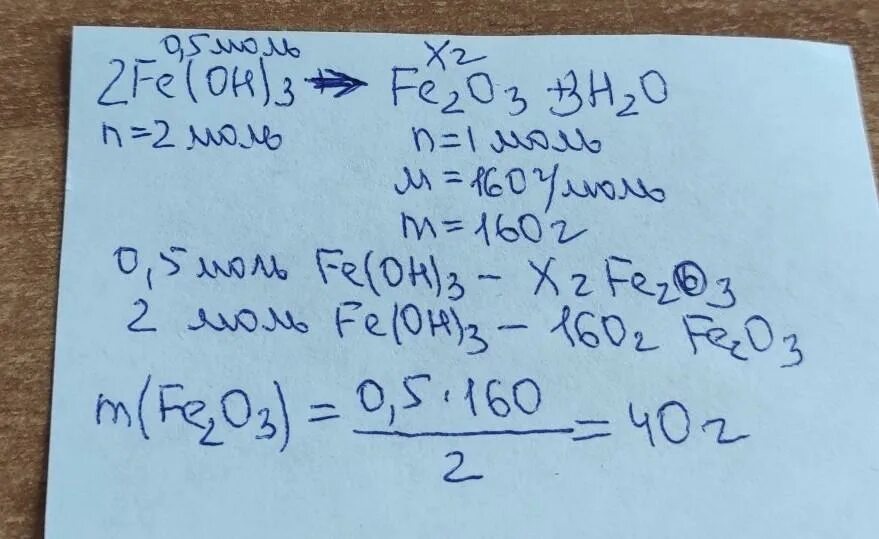 0,5 моль Xг
2Fe(OH)3 → Fe2O3 + 3H2O
n=2 моль n=1 моль
M=160 г/моль
m=160г
0,5 моль Fe(OH)3 – Xг Fe2O3
2 моль Fe(OH)3 – 160г Fe2O3
m(Fe2O3) = 0,5·160 / 2 = 40г